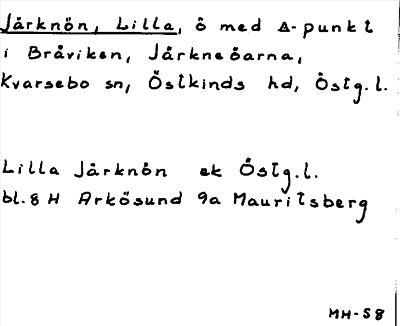 Järknön, Lilla, ö med Δ-punkt
i Bråviken, Järkneöarna,
Kvarsebo sn, Östkinds hd, Östg.l.
Lilla Järknön ek Östg.l.
bl. 8 H Arkösund 9a Mauritsberg
MH-58